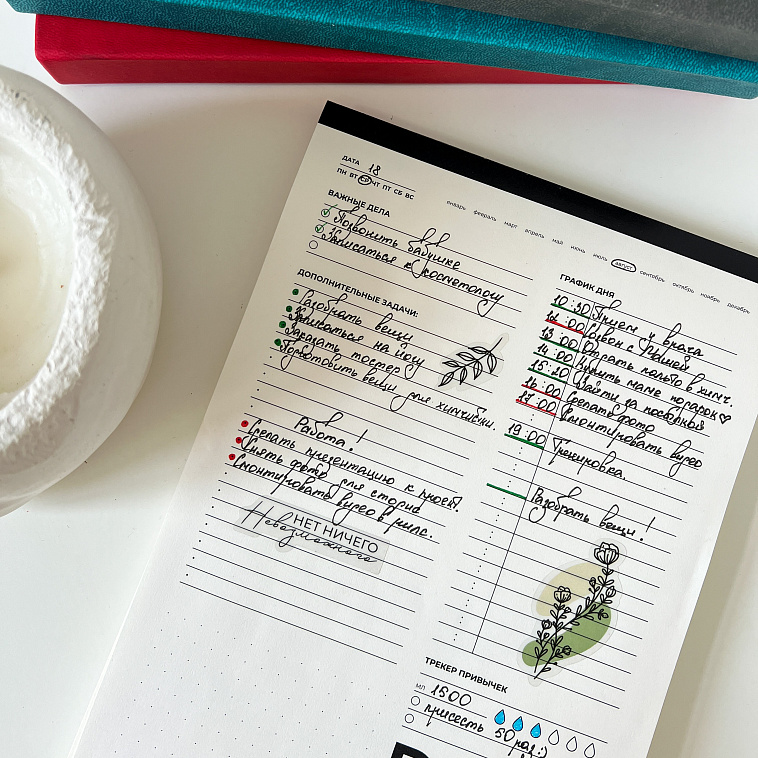 ДАТА 18
ПН ВТ СР ЧТ ПТ СБ ВС
январь февраль март апрель май июнь июль август сентябрь октябрь ноябрь декабрь
ВАЖНЫЕ ДЕЛА
Позвонить бабушке
Записаться к косметологу
ДОПОЛНИТЕЛЬНЫЕ ЗАДАЧИ:
Разобрать вещи
Записаться на йогу
Заказать постер
Подготовить вещи для химчистки.
Работа!
Сделать презентацию к проект.
Снять фото для сторис
Смонтировать видео в рилс.
НЕТ НИЧЕГО
Невозможного
ГРАФИК ДНЯ
10:30 Прием у врача
12:00 Созвон с Машей
13:00 Отдать пальто в химч.
14:00 Купить маме подарок♡
15:20 Зайти за посылкой
16:00 Сделать фото
17:00 Смонтировать видео
19:00 Тренировка.
Разобрать вещи!
ТРЕКЕР ПРИВЫЧЕК
МЛ 1500
присесть 50 раз:)